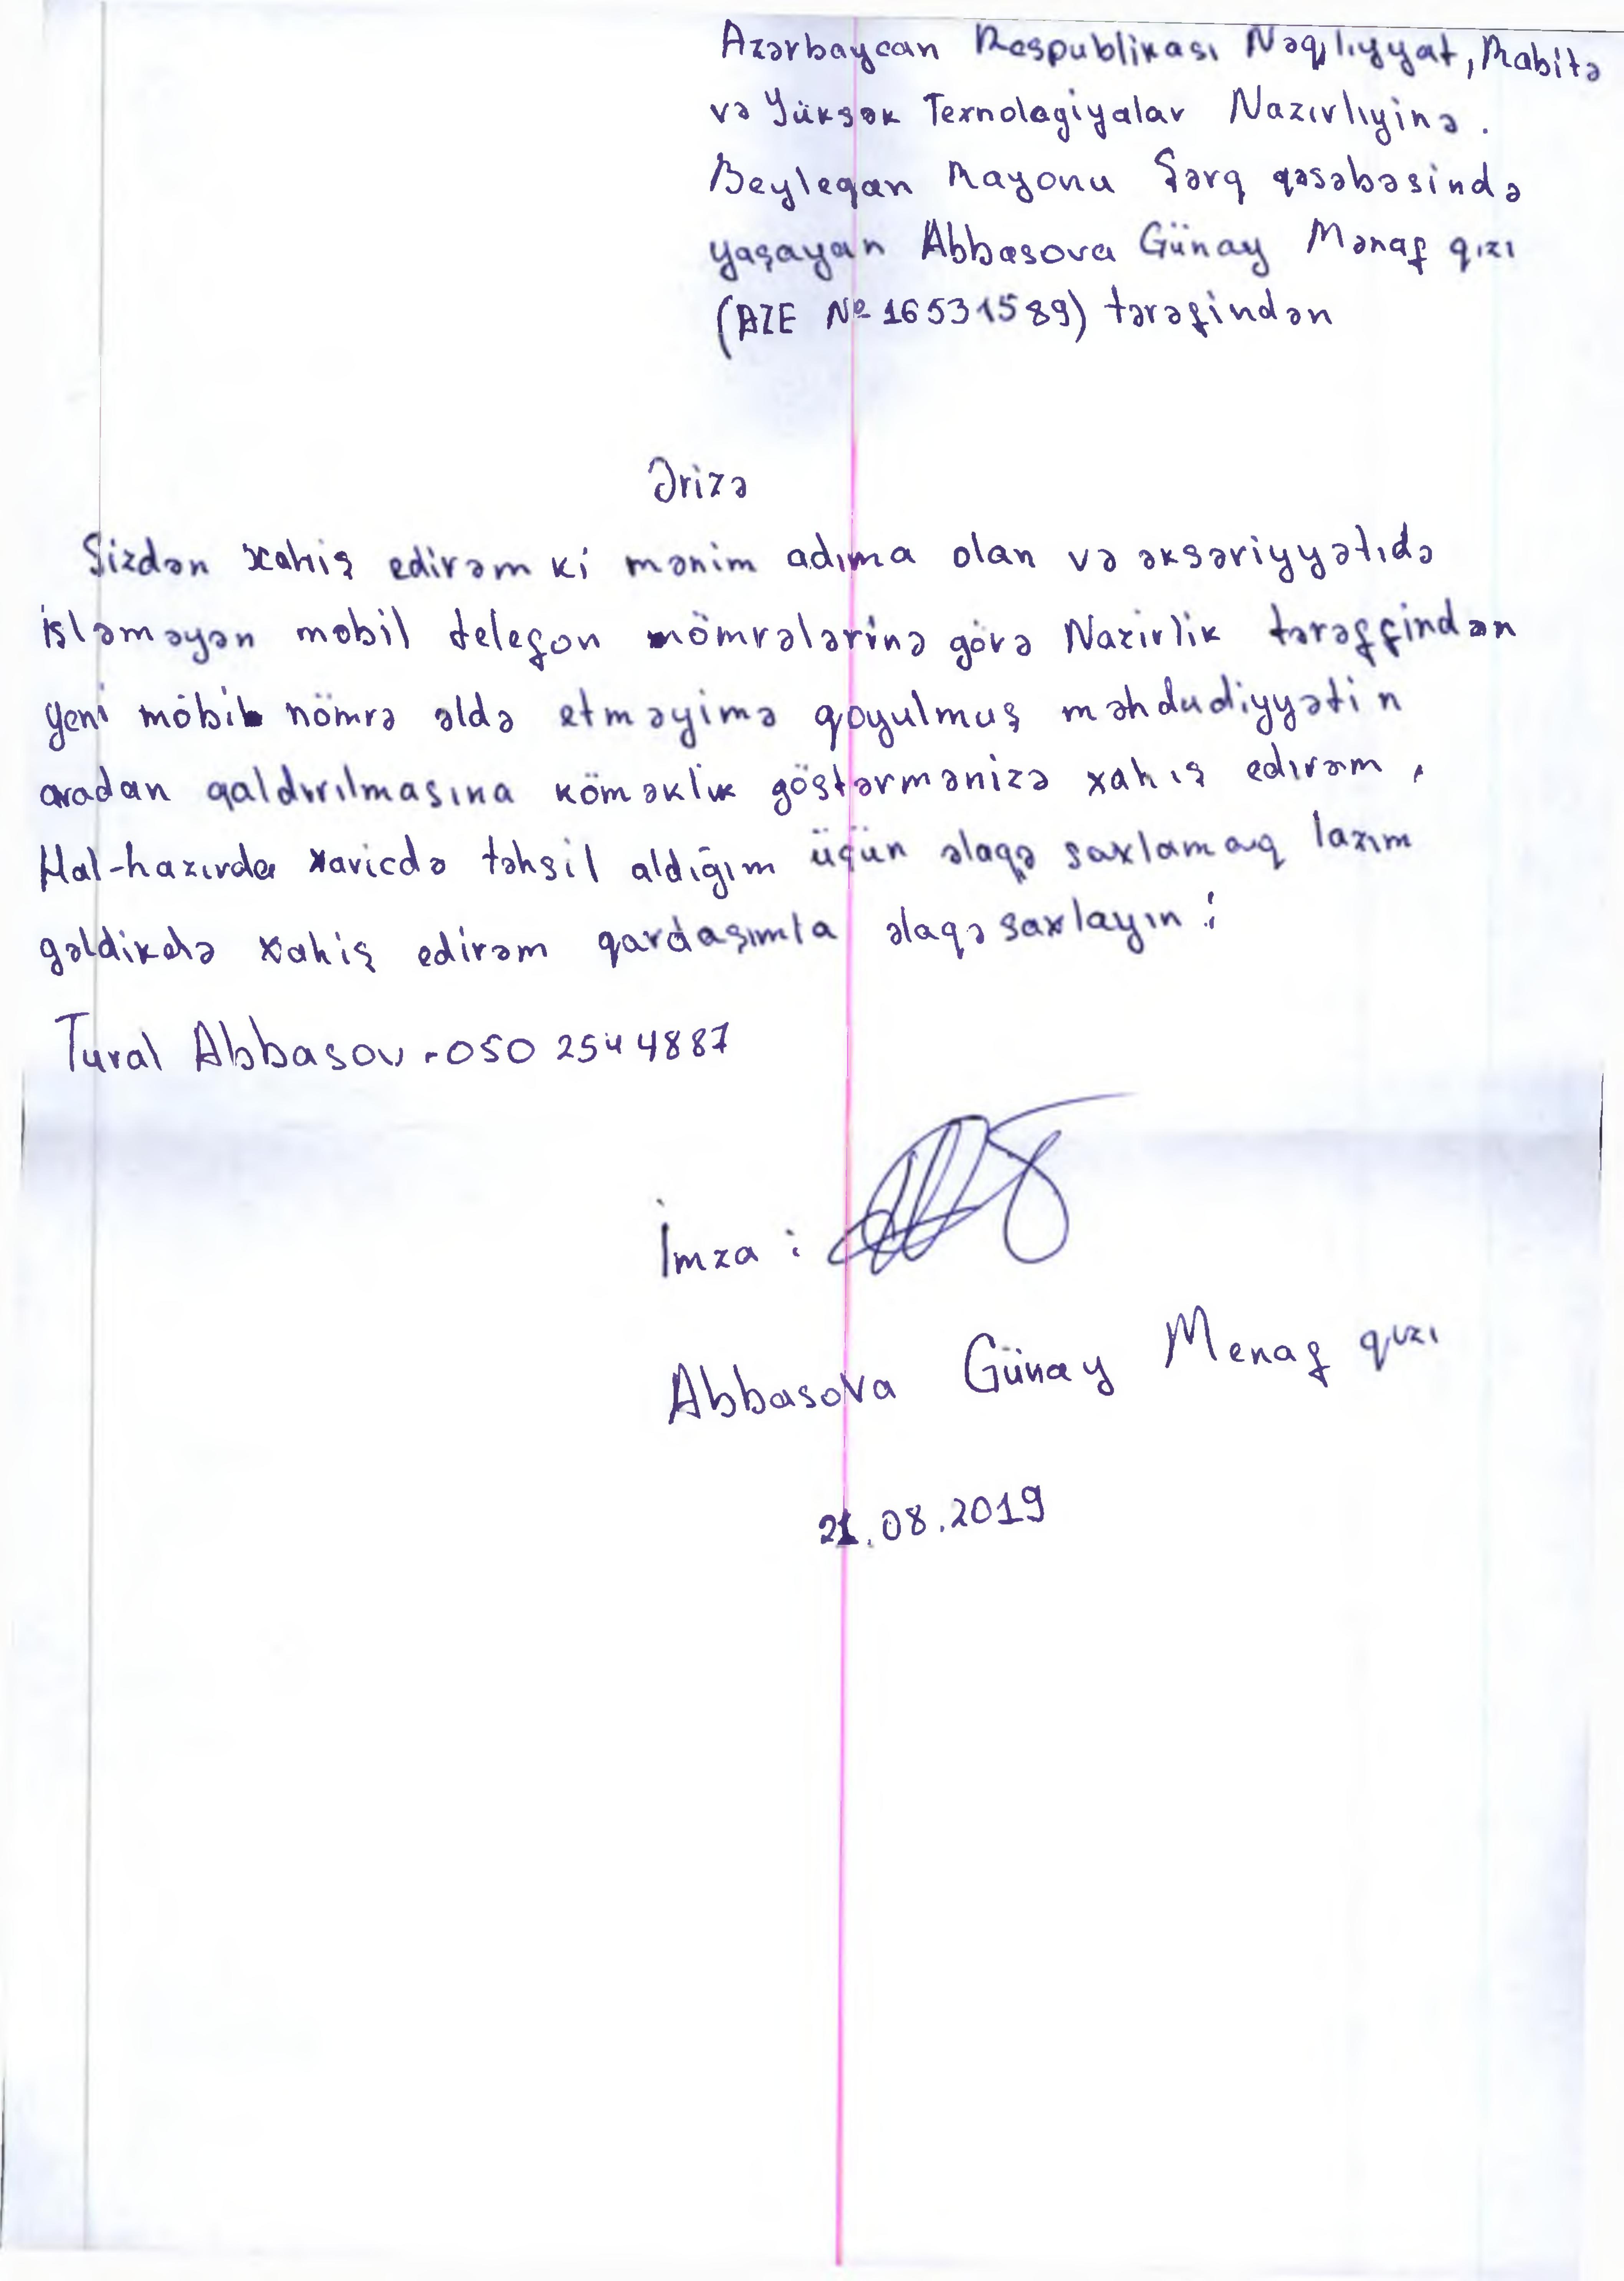 Azərbaycan Respublikası Nəqliyyat, Rabitə
və Yüksək Texnologiyalar Nazirliyinə.
Beyleqan Rayonu Şərq qəsəbəsində
yaşayan Abbasova Günay Mənaf qızı
(AZE № 16531589) tərəfindən
Ərizə
Sizdən xahiş edirəm ki mənim adıma olan və əksəriyyətidə
işləməyən mobil telefon nömrələrinə görə Nazirlik tərəffindən
yeni mobil nömrə əldə etməyimə qoyulmuş məhdudiyyətin
aradan qaldırılmasına köməklik göstərmənizə xahiş edirəm.
Hal-hazırda xaricdə təhsil aldığım üçün əlaqə saxlamaq lazım
gəldikdə xahiş edirəm qardaşımla əlaqə saxlayın:
Tural Abbasov - 050 254 4887
İmza:
Abbasova Günay Menaf qızı
21.08.2019